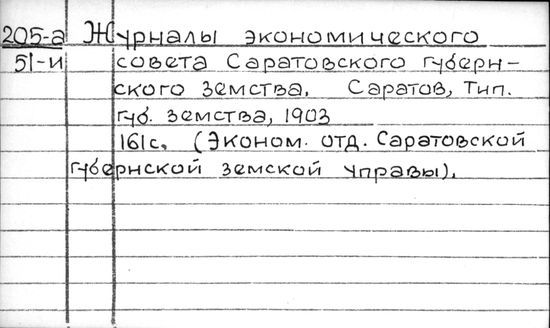 205-а Журналы экономического
51-и совета Саратовского губерн-
ского земства. Саратов, Тип.
губ. земства, 1903
161с. (Эконом. отд. Саратовской
губернской земской управы).